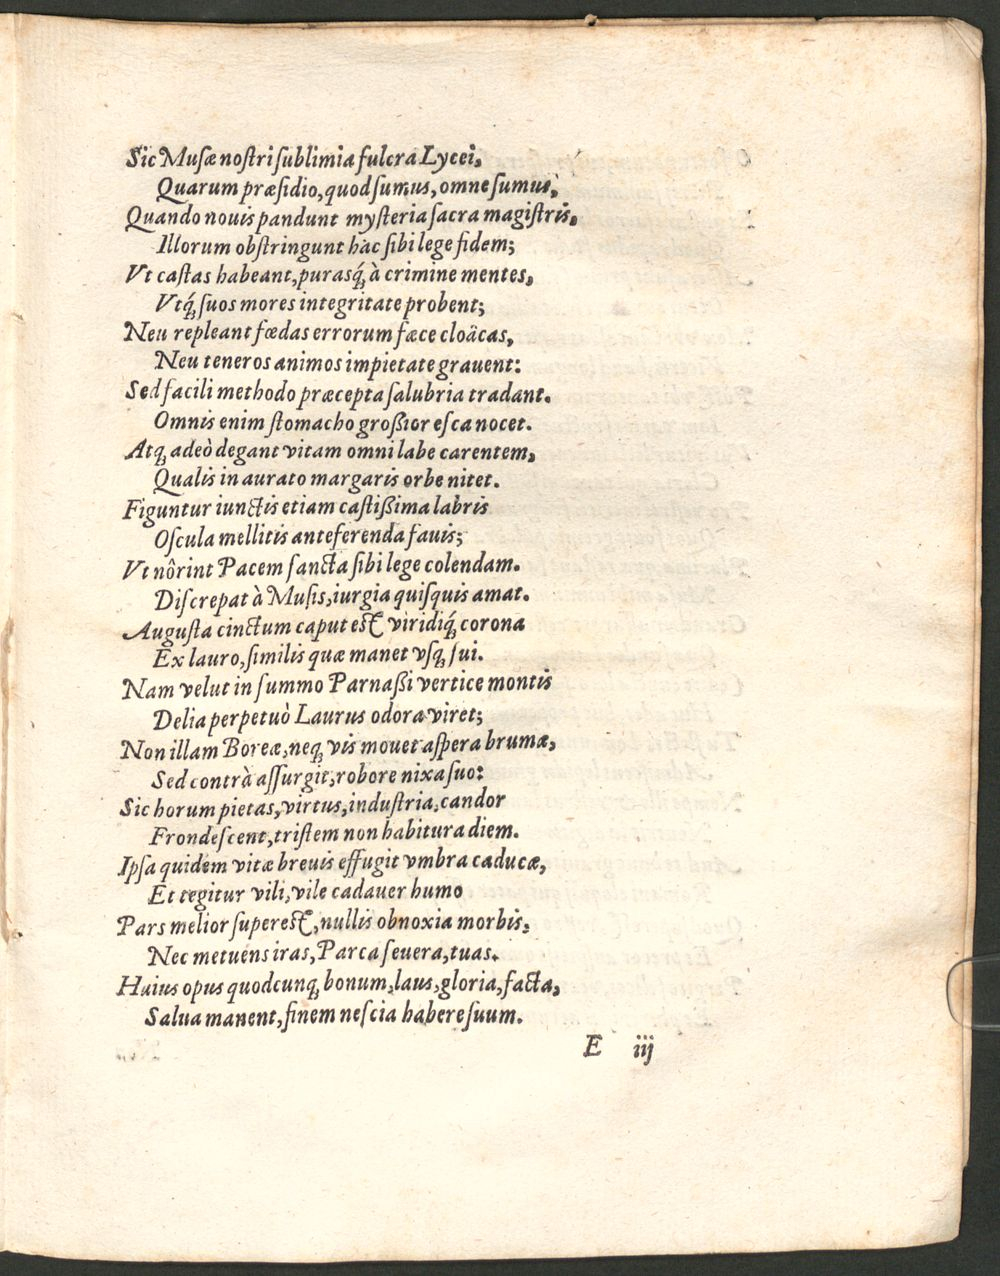 Sic Musæ nostri sublimia fulcra Lycei,
Quarum præsidio, quod sumus, omne sumus,
Quando nouis pandunt mysteria sacra magistris,
Illorum obstringunt hàc sibi lege fidem;
Vt castas habeant, purasq́; à crimine mentes,
Vtq́; suos mores integritate probent;
Neu repleant fœdas errorum fæce cloâcas,
Neu teneros animos impietate grauent:
Sed facili methodo præcepta salubria tradant.
Omnis enim stomacho großior esca nocet.
Atq; adeò degant vitam omni labe carentem,
Qualis in aurato margaris orbe nitet.
Figuntur iunctis etiam castißima labris
Oscula mellitis anteferenda fauis;
Vt nôrint Pacem sancta sibi lege colendam.
Discrepat à Musis, iurgia quisquis amat.
Augusta cinctum caput est viridiq́; corona
Ex lauro, similis quæ manet vsq; sui.
Nam velut in summo Parnaßi vertice montis
Delia perpetuò Laurus odora viret;
Non illam Boreæ, neq; vis mouet aspera brumæ,
Sed contrà assurgit, robore nixa suo:
Sic horum pietas, virtus, industria, candor
Frondescent, tristem non habitura diem.
Ipsa quidem vitæ breuis effugit vmbra caducæ,
Et tegitur vili, vile cadauer humo
Pars melior superest, nullis obnoxia morbis,
Nec metuens iras, Parca seuera, tuas.
Huius opus quodcunq; bonum, laus, gloria, facta,
Salua manent, finem nescia habere suum.
E iij